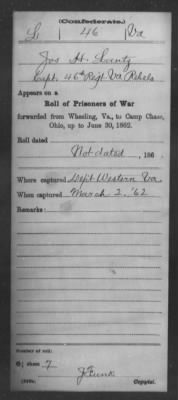 (Confederate.)
46 Va
Jos H. Lantz
Capt. 46th Regt. Va Rebels
Appears on a
Roll of Prisoners of War
forwarded from Wheeling, Va., to Camp Chase,
Ohio, up to June 30, 1862.
Roll dated
Not dated, 186
Where captured Dept Western Va.
When captured March 2, '62
Remarks:
Number of roll:
sheet 7
J Funk
Copyist.